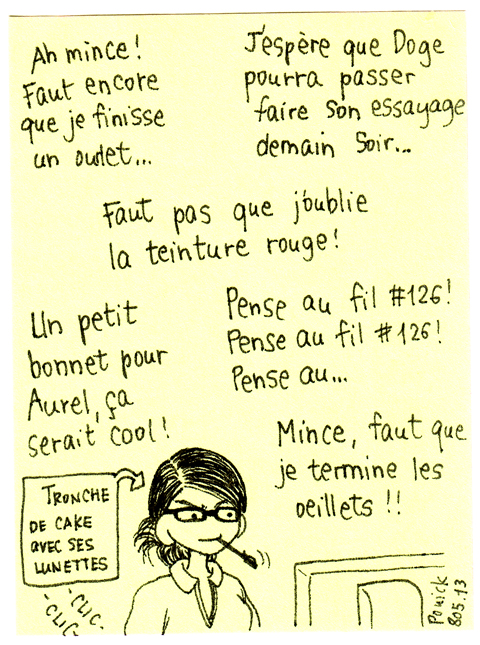 Ah mince !
Faut encore
que je finisse
un ourlet...
J'espère que Doge
pourra passer
faire son essayage
demain soir...
Faut pas que j'oublie
la teinture rouge !
Un petit
bonnet pour
Aurel, ça
serait cool !
Pense au fil #126 !
Pense au fil #126 !
Pense au...
Mince, faut que
je termine les
oeillets !!
TRONCHE
DE CAKE
AVEC SES
LUNETTES
-CLIC-
-CLIC-
Pouick
805.13